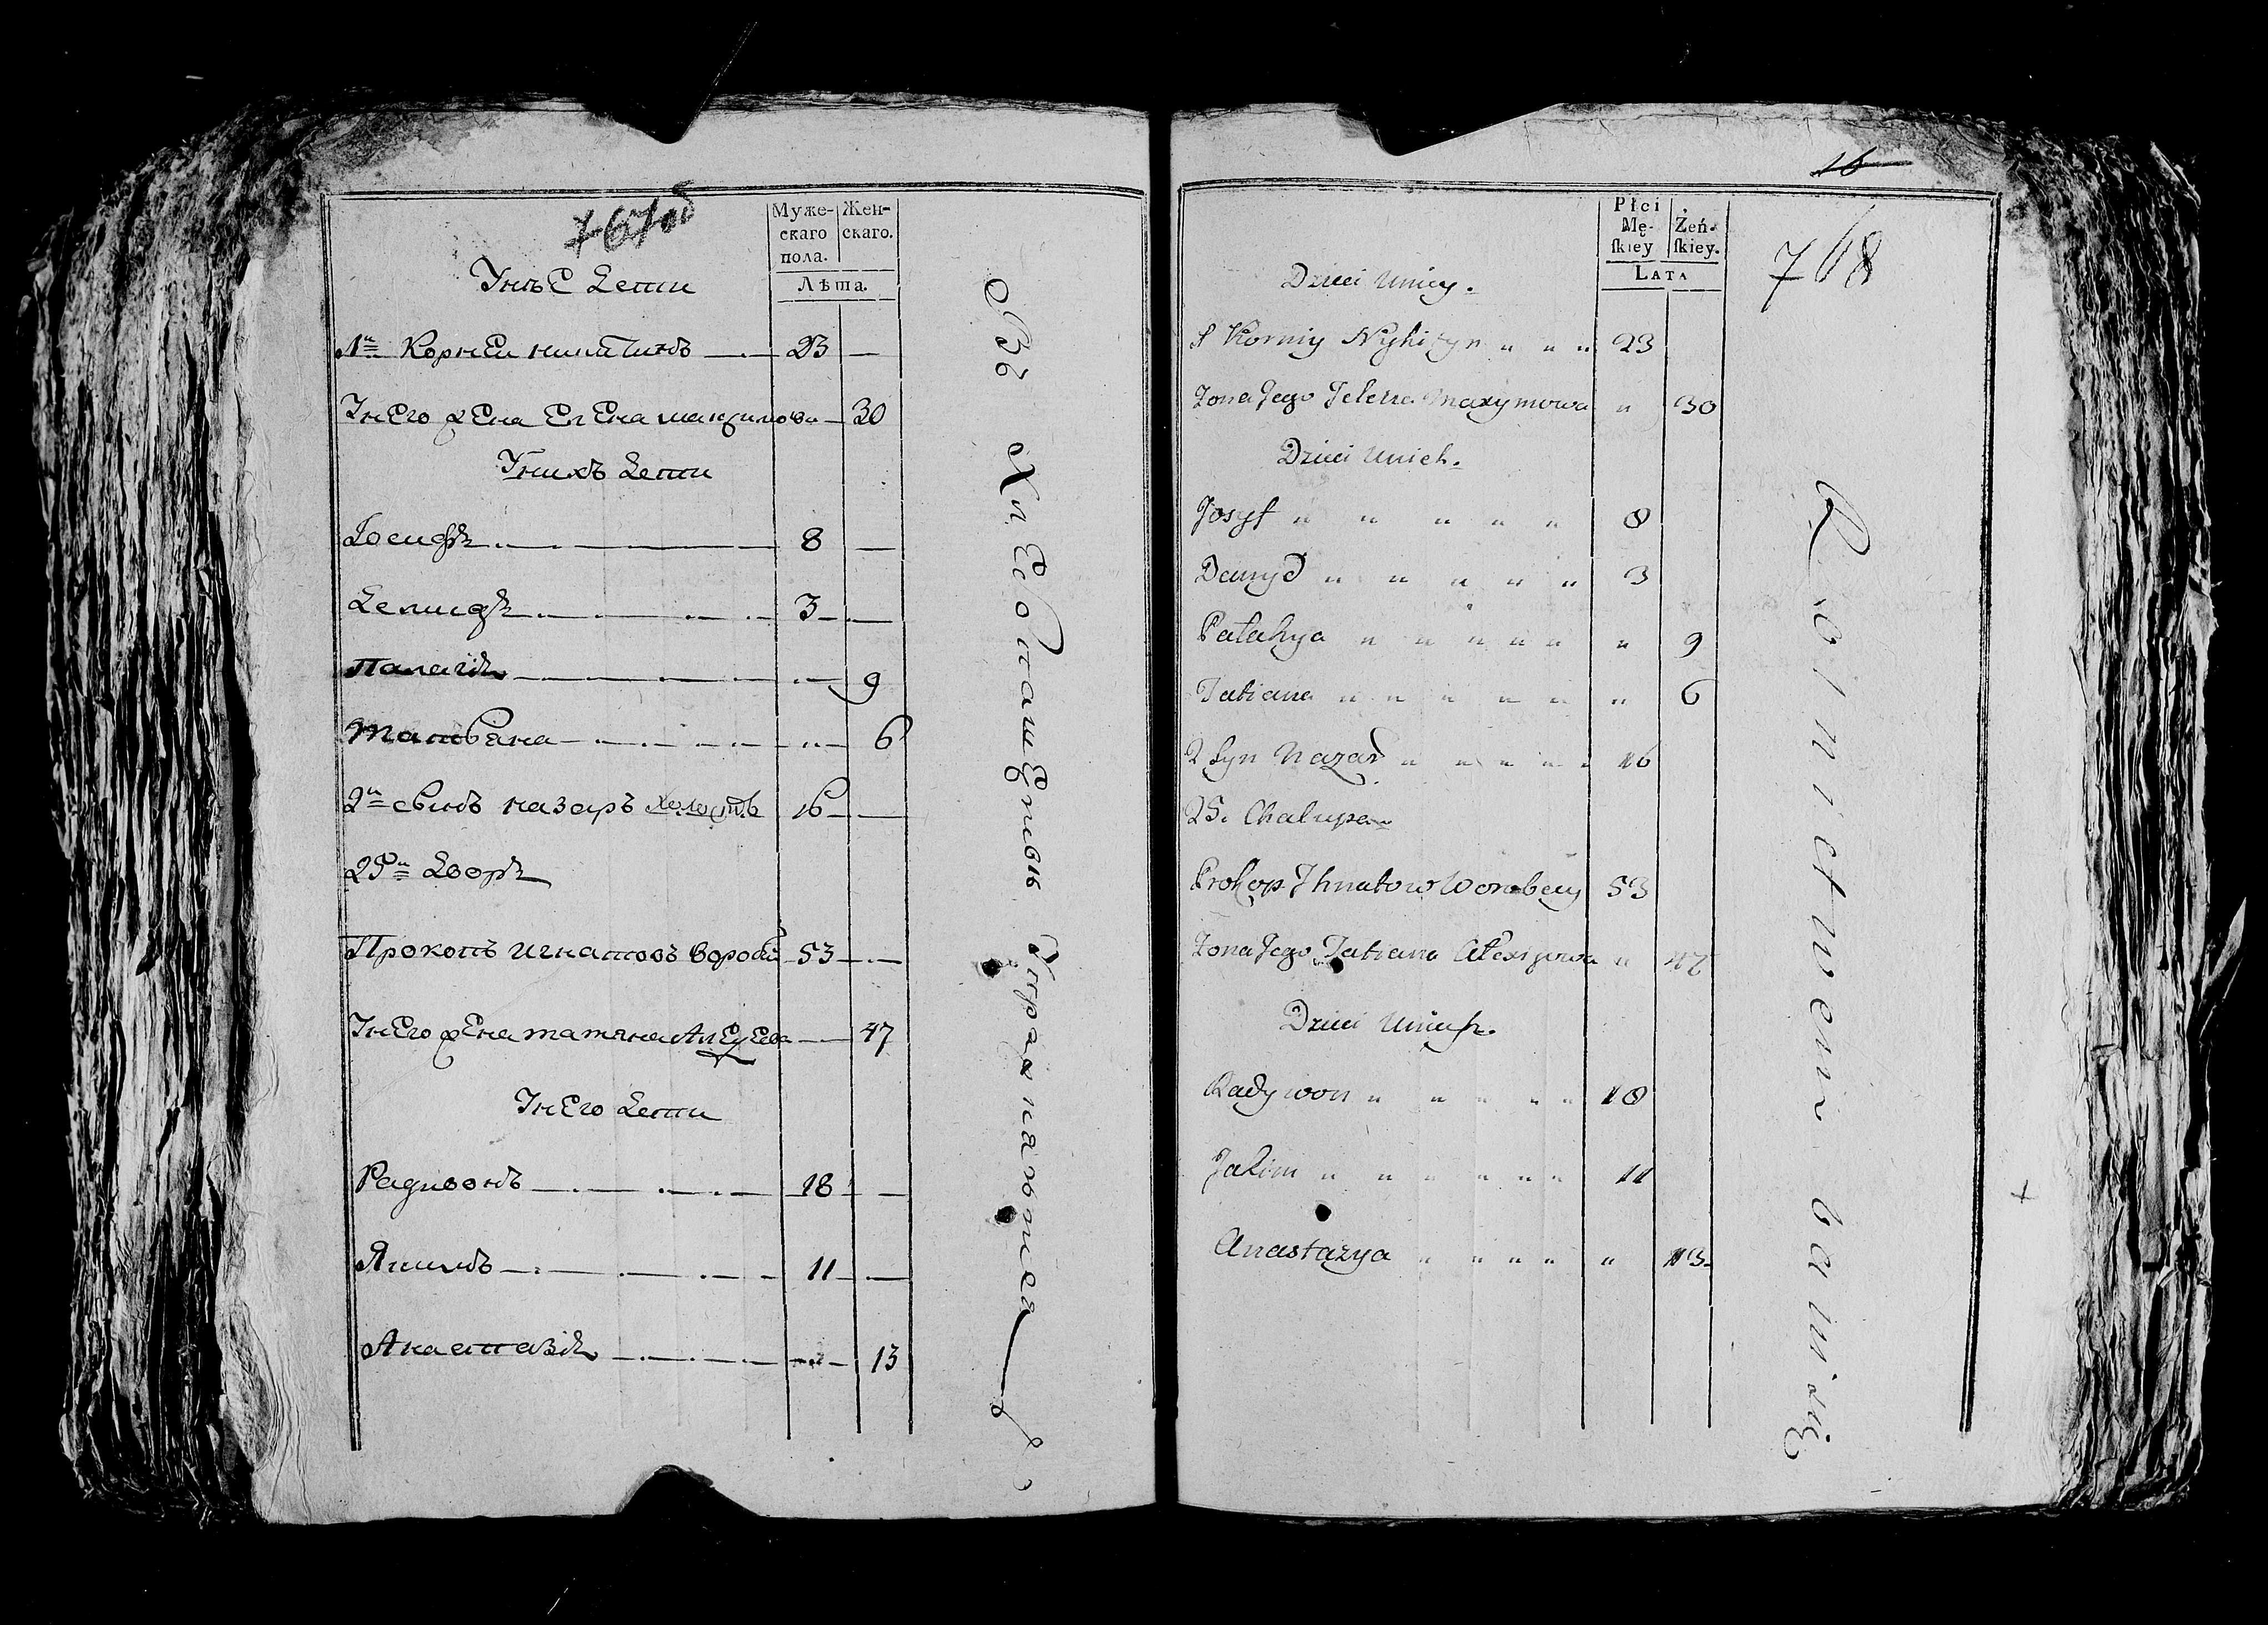 767об
Муже-
скаго
пола.
Жен-
скаго.
Лѣта.
У неЕ Дети
1й Корней никитинъ 23
У него жена Елена максимова 30
У нихъ дети
Іосифъ 8
Демидъ 3
Палагія 9
Татьяна 6
2й сынъ назаръ холостъ 16
25й Дворъ
Прокопъ игнатовъ воробей 53
У него жена татяна Алексеева 47
У него дети
Радивонъ 18
Якимъ 11
Анастазія 13
Въ Хлебопашеныи упражняется
16
768
Płci
Mę-
skiey
Żeń-
skiey.
LATA
Dzieci Uniey.
1 Korniy Nykityn " " " 23
Zona Jego Jelena Maxymowa " 30
Dzieci Unich.
Josyf " " " " " 8
Demyd " " " " " 3
Palahya " " " " " " 9
Tatiana " " " " " " 6
2 Syn Nazar " " " " " 16
25. Chalupa
Prokop Ihnatow Worobey 53
Zona Jego Tatiana Alexijowa " 47
Dzieci Unich.
Radywon " " " " " 18
Jakim " " " " " " 11
Anastazya " " " " " 13
Rolnictwem bawi się